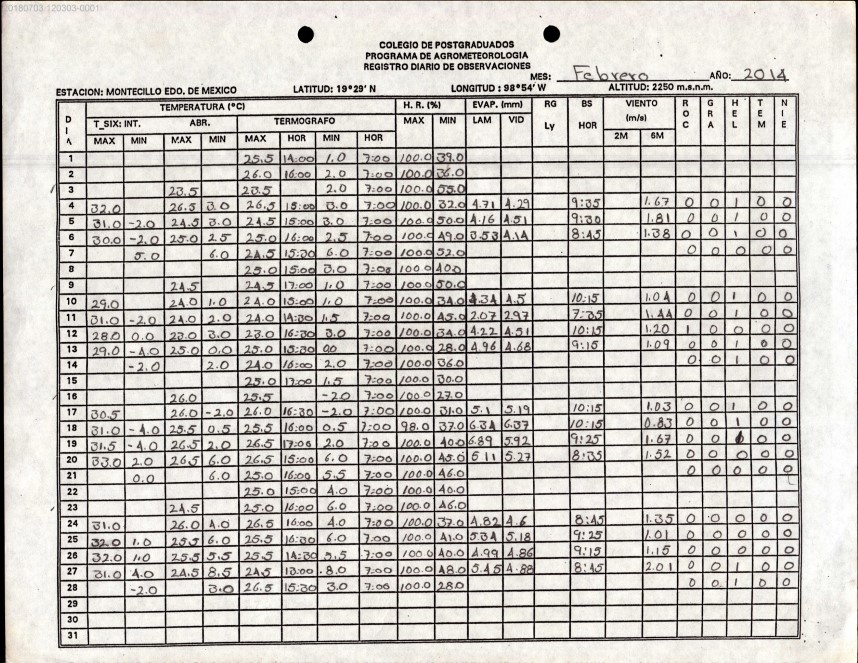 20180703 120303-0001
COLEGIO DE POSTGRADUADOS
PROGRAMA DE AGROMETEOROLOGIA
REGISTRO DIARIO DE OBSERVACIONES
MES: Febrero AÑO: 2014
ESTACION: MONTECILLO EDO. DE MEXICO LATITUD: 19°29' N LONGITUD : 98°54' W ALTITUD: 2250 m.s.n.m.
DIA TEMPERATURA (°C) H. R. (%) EVAP. (mm) RG BS VIENTO ROC GRA HEL TEM NIE
T_SIX: INT. ABR. TERMOGRAFO MAX MIN LAM VID Ly HOR (m/s)
MAX MIN MAX MIN MAX HOR MIN HOR 2M 6M
1 25.5 14:00 1.0 7:00 100.0 39.0
2 26.0 16:00 2.0 7:00 100.0 36.0
3 23.5 23.5 2.0 7:00 100.0 55.0
4 32.0 26.5 3.0 26.5 15:00 3.0 7:00 100.0 32.0 4.71 4.29 9:35 1.67 0 0 1 0 0
5 31.0 -2.0 24.5 3.0 24.5 15:00 3.0 7:00 100.0 50.0 4.16 4.51 9:30 1.81 0 0 1 0 0
6 30.0 -2.0 25.0 2.5 25.0 16:00 2.5 7:00 100.0 49.0 3.53 4.14 8:45 1.38 0 0 1 0 0
7 5.0 6.0 24.5 15:30 6.0 7:00 100.0 52.0 0 0 0 0 0
8 25.0 15:00 3.0 7:00 100.0 40.0
9 24.5 24.5 17:00 1.0 7:00 100.0 50.0
10 29.0 24.0 1.0 24.0 15:00 1.0 7:00 100.0 34.0 4.34 4.5 10:15 1.04 0 0 1 0 0
11 31.0 -2.0 24.0 2.0 24.0 14:30 1.5 7:00 100.0 45.0 2.07 2.97 7:35 1.44 0 0 1 0 0
12 28.0 0.0 23.0 3.0 23.0 16:30 3.0 7:00 100.0 34.0 4.22 4.51 10:15 1.20 1 0 0 0 0
13 29.0 -4.0 25.0 0.0 25.0 15:30 0.0 7:00 100.0 28.0 4.96 4.68 9:15 1.09 0 0 1 0 0
14 -2.0 2.0 24.0 16:00 2.0 7:00 100.0 36.0 0 0 1 0 0
15 25.0 17:00 1.5 7:00 100.0 30.0
16 26.0 25.5 -2.0 7:00 100.0 27.0
17 30.5 26.0 -2.0 26.0 16:30 -2.0 7:00 100.0 31.0 5.1 5.19 10:15 1.03 0 0 1 0 0
18 31.0 -4.0 25.5 0.5 25.5 16:00 0.5 7:00 98.0 37.0 6.34 6.37 10:15 0.83 0 0 1 0 0
19 31.5 -4.0 26.5 2.0 26.5 17:00 2.0 7:00 100.0 40.0 6.89 5.92 9:25 1.67 0 0 0 0
20 33.0 2.0 26.5 6.0 26.5 15:00 6.0 7:00 100.0 45.0 5.11 5.27 8:35 1.52 0 0 0 0 0
21 0.0 6.0 25.0 16:00 5.5 7:00 100.0 46.0 0 0 0 0 0
22 25.0 15:00 4.0 7:00 100.0 40.0
23 24.5 25.0 16:00 6.0 7:00 100.0 46.0
24 31.0 26.0 4.0 26.5 16:00 4.0 7:00 100.0 37.0 4.82 4.6 8:45 1.35 0 0 0 0 0
25 32.0 1.0 25.5 6.0 25.5 16:30 6.0 7:00 100.0 41.0 5.34 5.18 9:25 1.01 0 0 0 0 0
26 32.0 1.0 25.5 5.5 25.5 14:30 5.5 7:00 100.0 40.0 4.99 4.86 9:15 1.15 0 0 0 0 0
27 31.0 4.0 24.5 8.5 24.5 13:00 8.0 7:00 100.0 48.0 5.45 4.88 8:45 2.01 0 0 1 0 0
28 -2.0 3.0 26.5 15:30 3.0 7:00 100.0 28.0 0 0 1 0 0
29
30
31